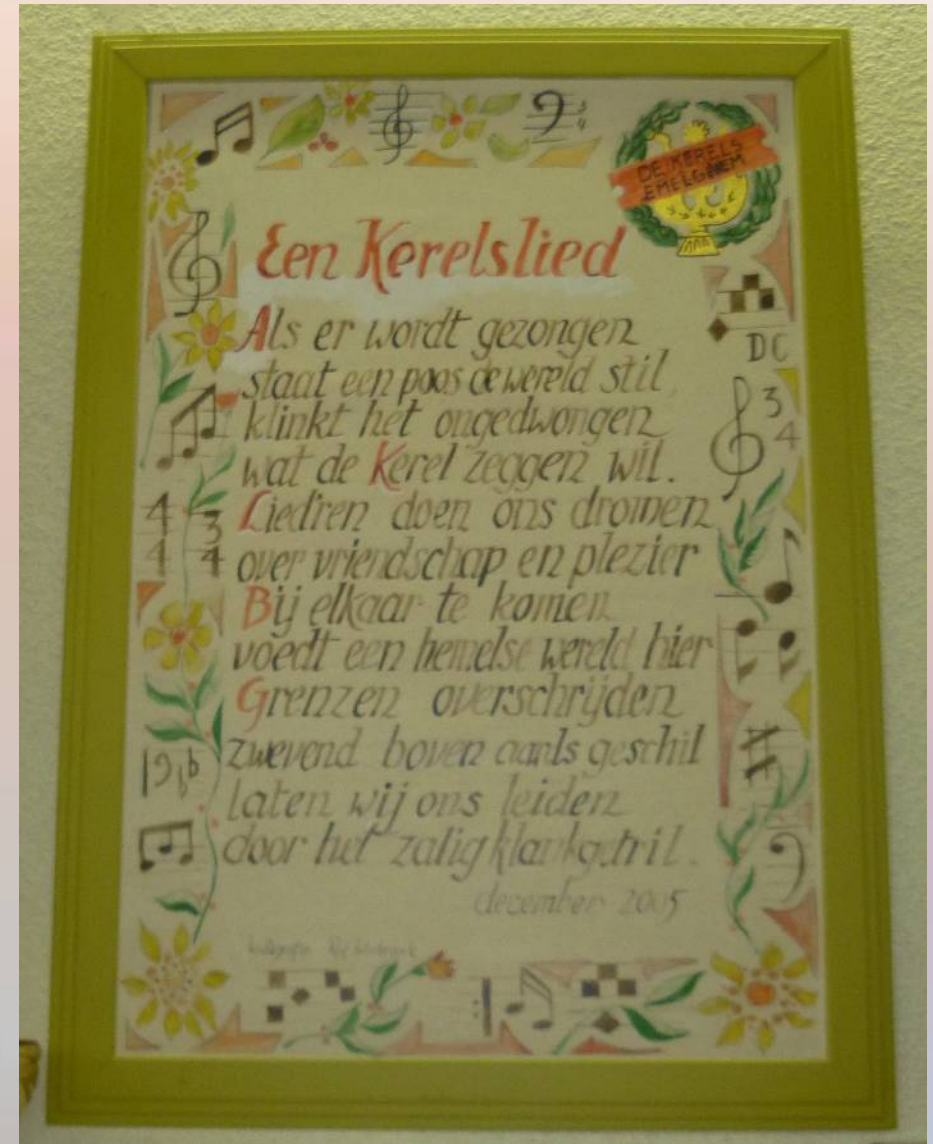 DE KERELS
EMELGHEM
Een Kerelslied
Als er wordt gezongen
staat een poos de wereld stil,
klinkt het ongedwongen
wat de Kerel zeggen wil.
Liedren doen ons dromen
over vriendschap en plezier
Bij elkaar te komen
voedt een hemelse wereld hier
Grenzen overschrijden
zwevend boven aards geschil
laten wij ons leiden
door het zalig klankgetril.
december 2005
3
4
DC
3
4
4 3
4 4